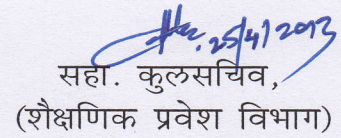 25/4/2013
सहा. कुलसचिव,
(शैक्षणिक प्रवेश विभाग)